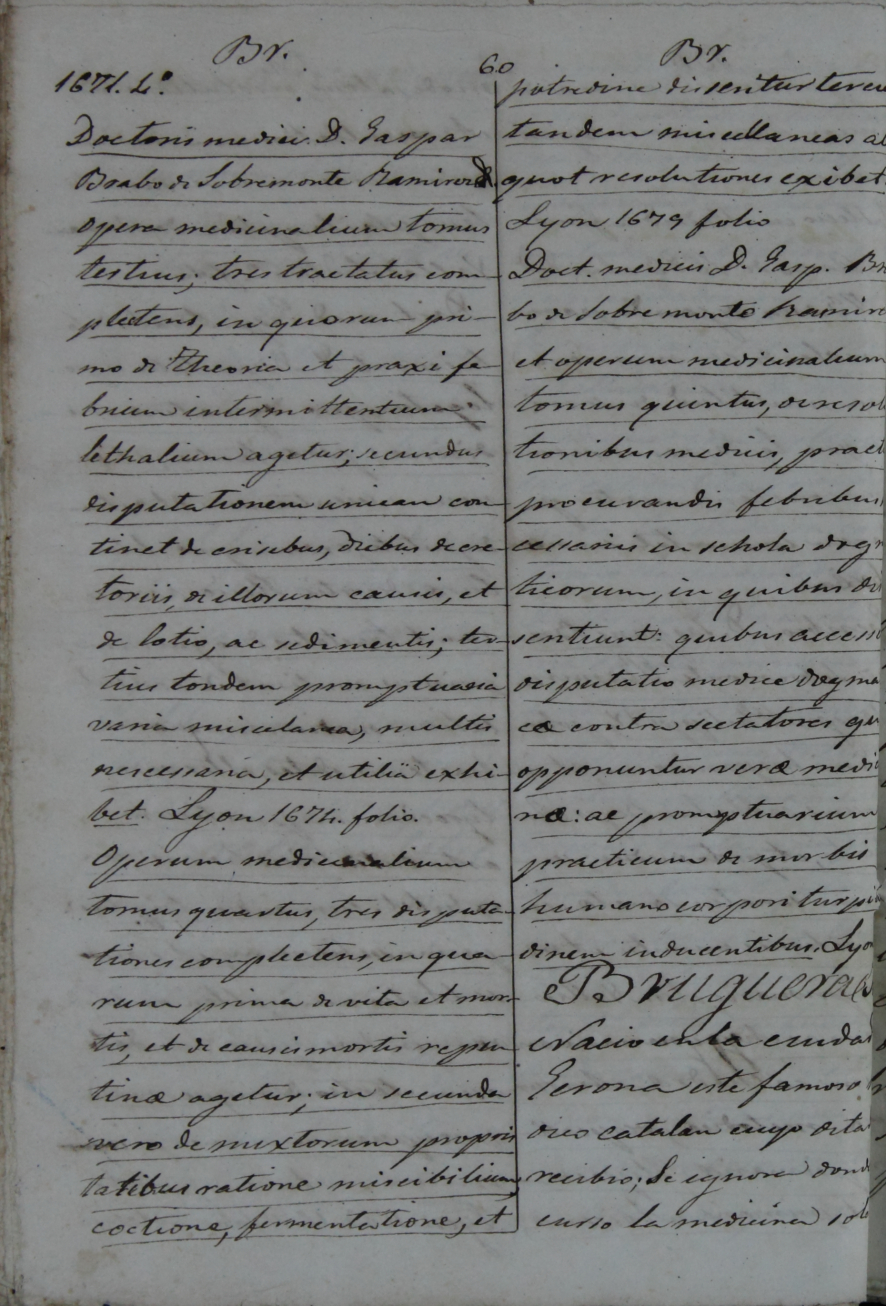 Br.
60
Br.
1671. 4º
Doctoris medici. D. Gaspar
Brabo de Sobremonte Ramirez
opera medicinalium tomus
testius; tres tractatus com-
plectens, in quorum pri-
mo de Theoria et praxi fe-
brium intermittentium
lethalium agetur; secundus
disputationem unicam con-
tinet de crisibus, diebus decre-
toriis, de illorum causis, et
de lotio, ac sedimentis; ter-
tius tondem promptuaria
varia miscelanea, multis
nescessaria, et utilia exhi-
bet. Lyon 1674. folio.
Operum medicinalium
tomus quartus, tres disputa-
tiones complectens, in qua-
rum prima de vita et mor-
tis, et de causis mortis repen-
tinæ agetur; in secunda
vero de mixtorum propris
tatibus ratione miscibilium,
coctione, fermentatione, et
putredine disseritur
tandem miscellaneas al
quot resolutiones exibet
Lyon 1679 folio
Doct. medicis D. Gasp. Br
bo de Sobremonte Ramire
et operum medicinalium
tomus quintus, de resol
tionibus medicis, pract
pro curandis febribus
cessariis in schola dogm
ticorum, in quibus di
sentiunt: quibus accessi
disputatio medice dogma
cæ contra sectatores qu
opponuntur veræ medi
næ: ac promptuarium
practicum de morbis
humano corpori turpi
dinem inducentibus. Lyo
Bruguera
Nacio en la ciudad
Gerona este famoso
dico catalan cuyo dita
recibio; Se ignora donde
curso la medicina sol